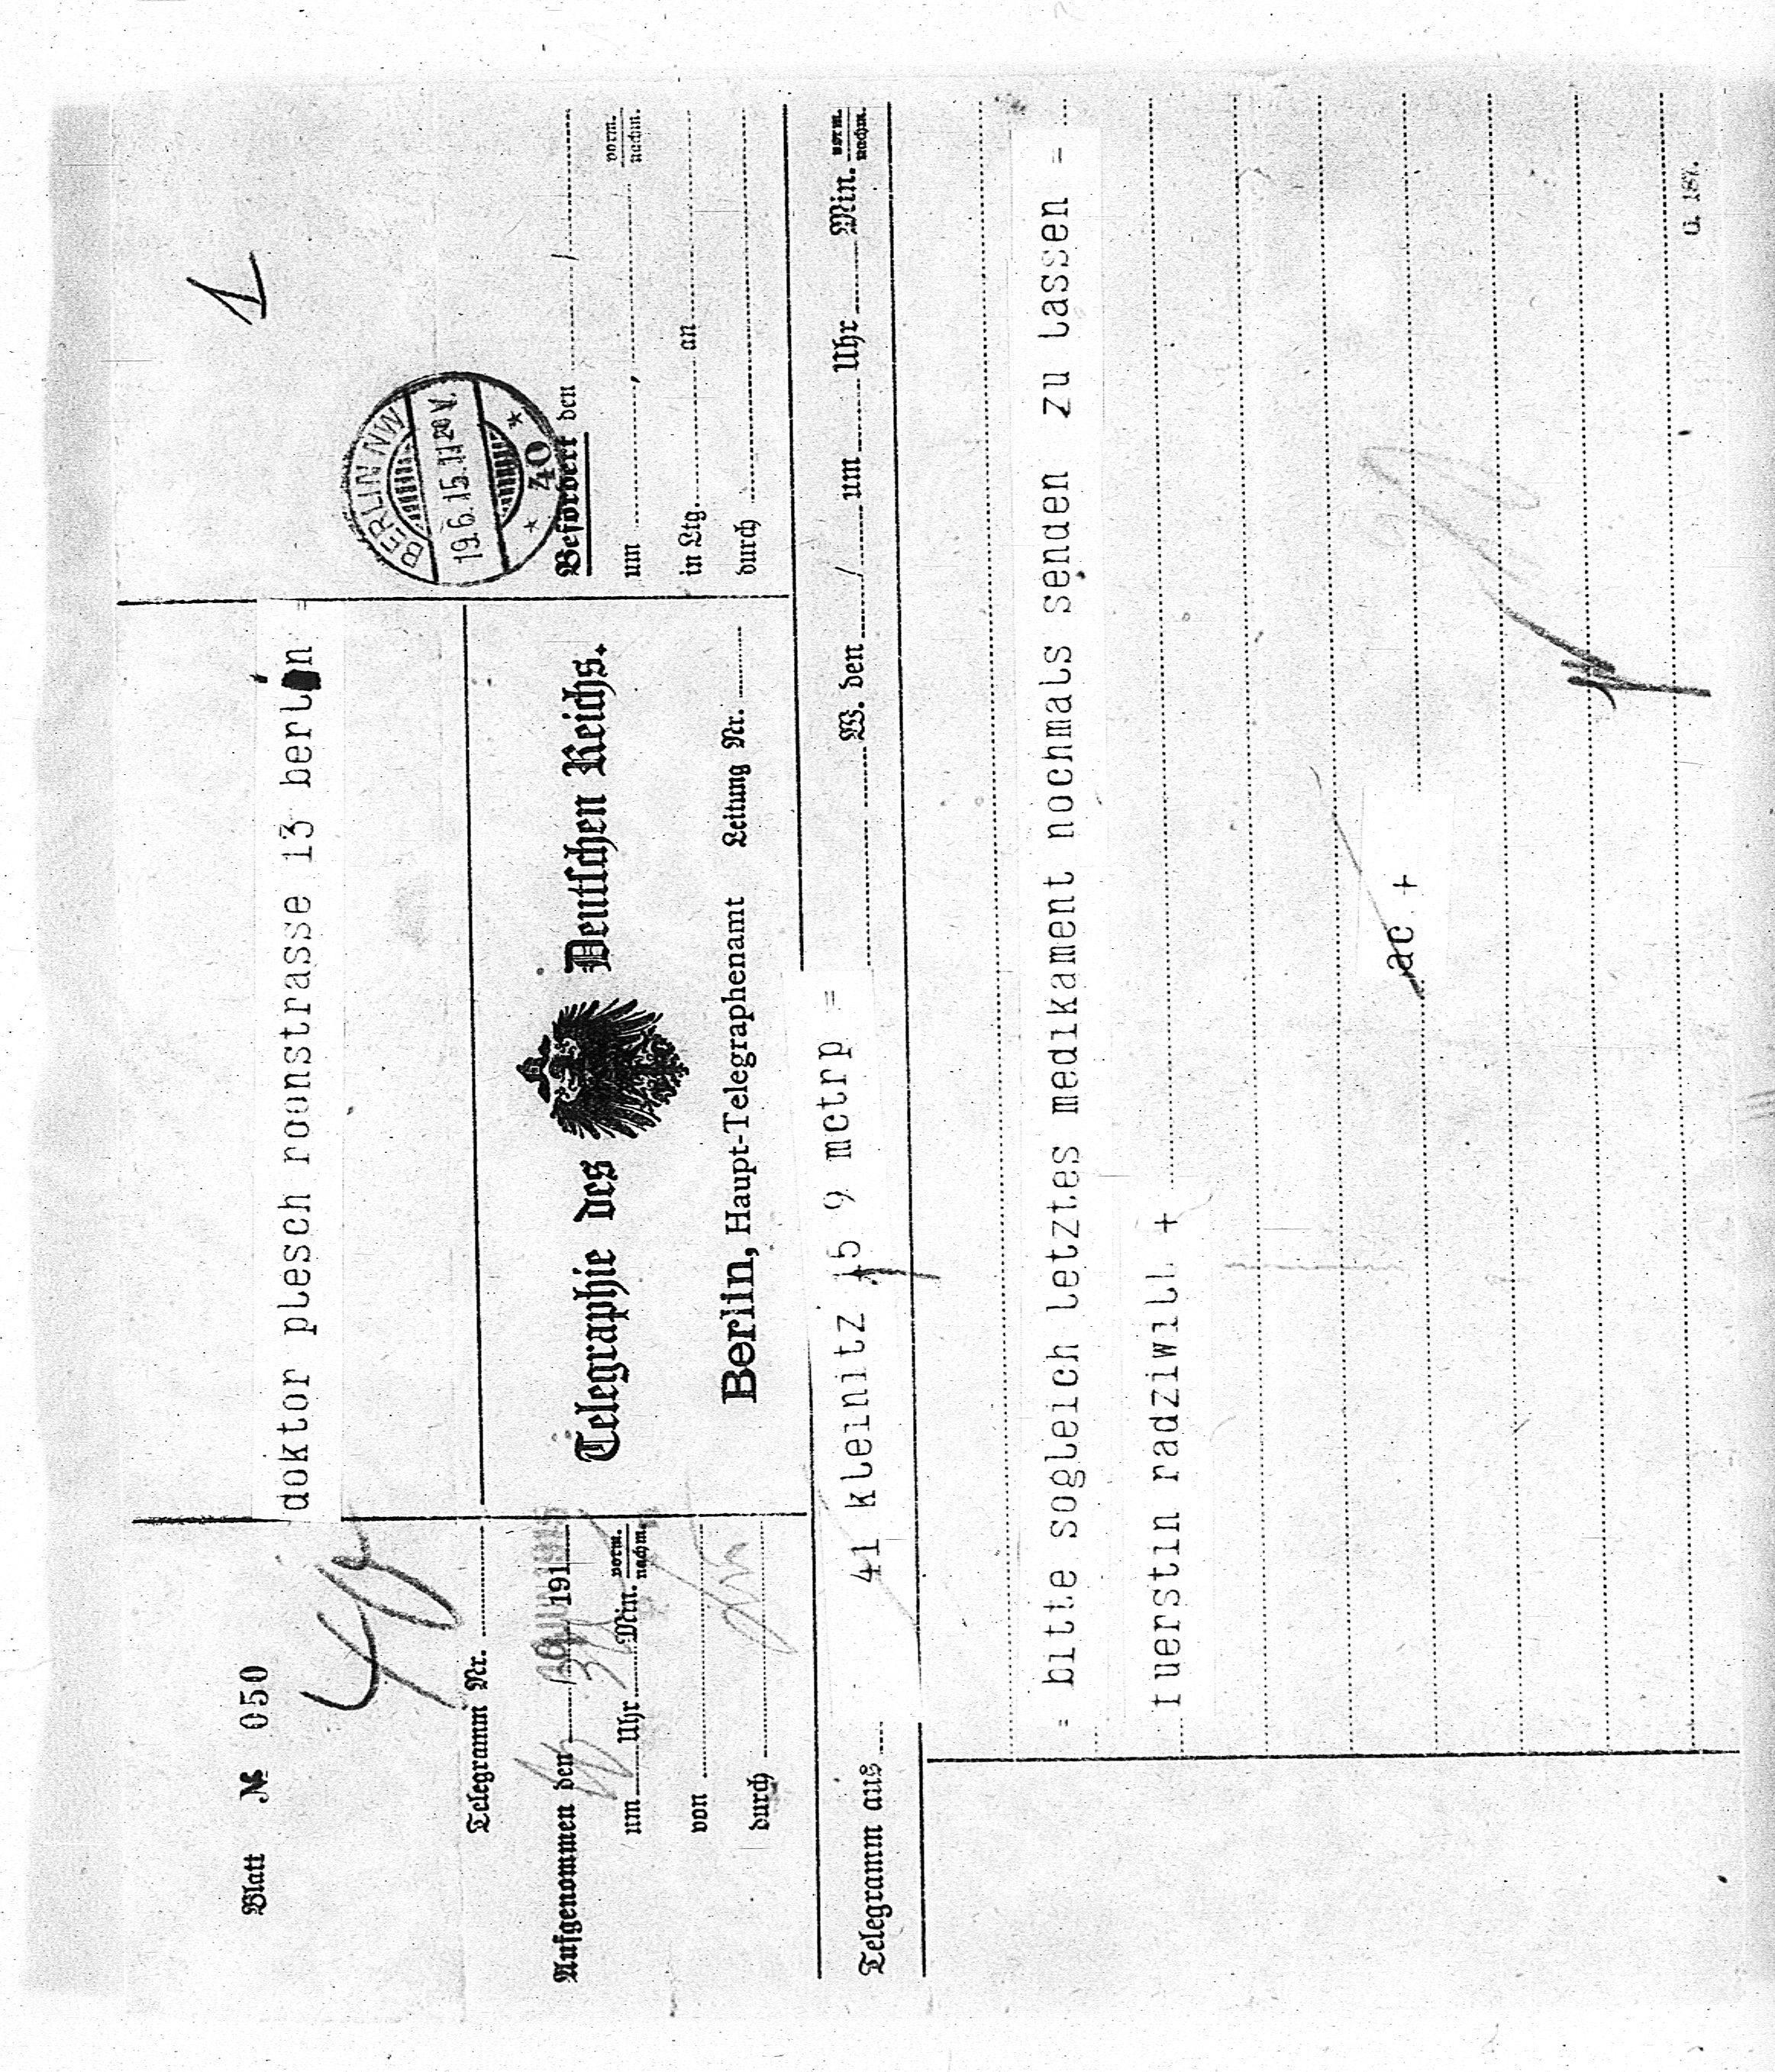 Blatt № 050
40
doktor plesch roonstrasse 13 berlin =
1
BERLIN NW
19.6.15.11 20 V.
* 40 *
Telegramm Nr.
Telegraphie des Deutschen Reichs.
Berlin, Haupt-Telegraphenamt Leitung Nr.
Aufgenommen den / 191
um Uhr Min. vorm. nachm.
von
durch
Befördert den /
um , vorm. nachm.
in Ltg. an
durch
Telegramm aus 41 kleinitz 15 9 mctrp = W. den / um Uhr Min. vorm. nachm.
= bitte sogleich letztes medikament nochmals senden zu lassen =
fuerstin radziwill +
ac +
C. 187.